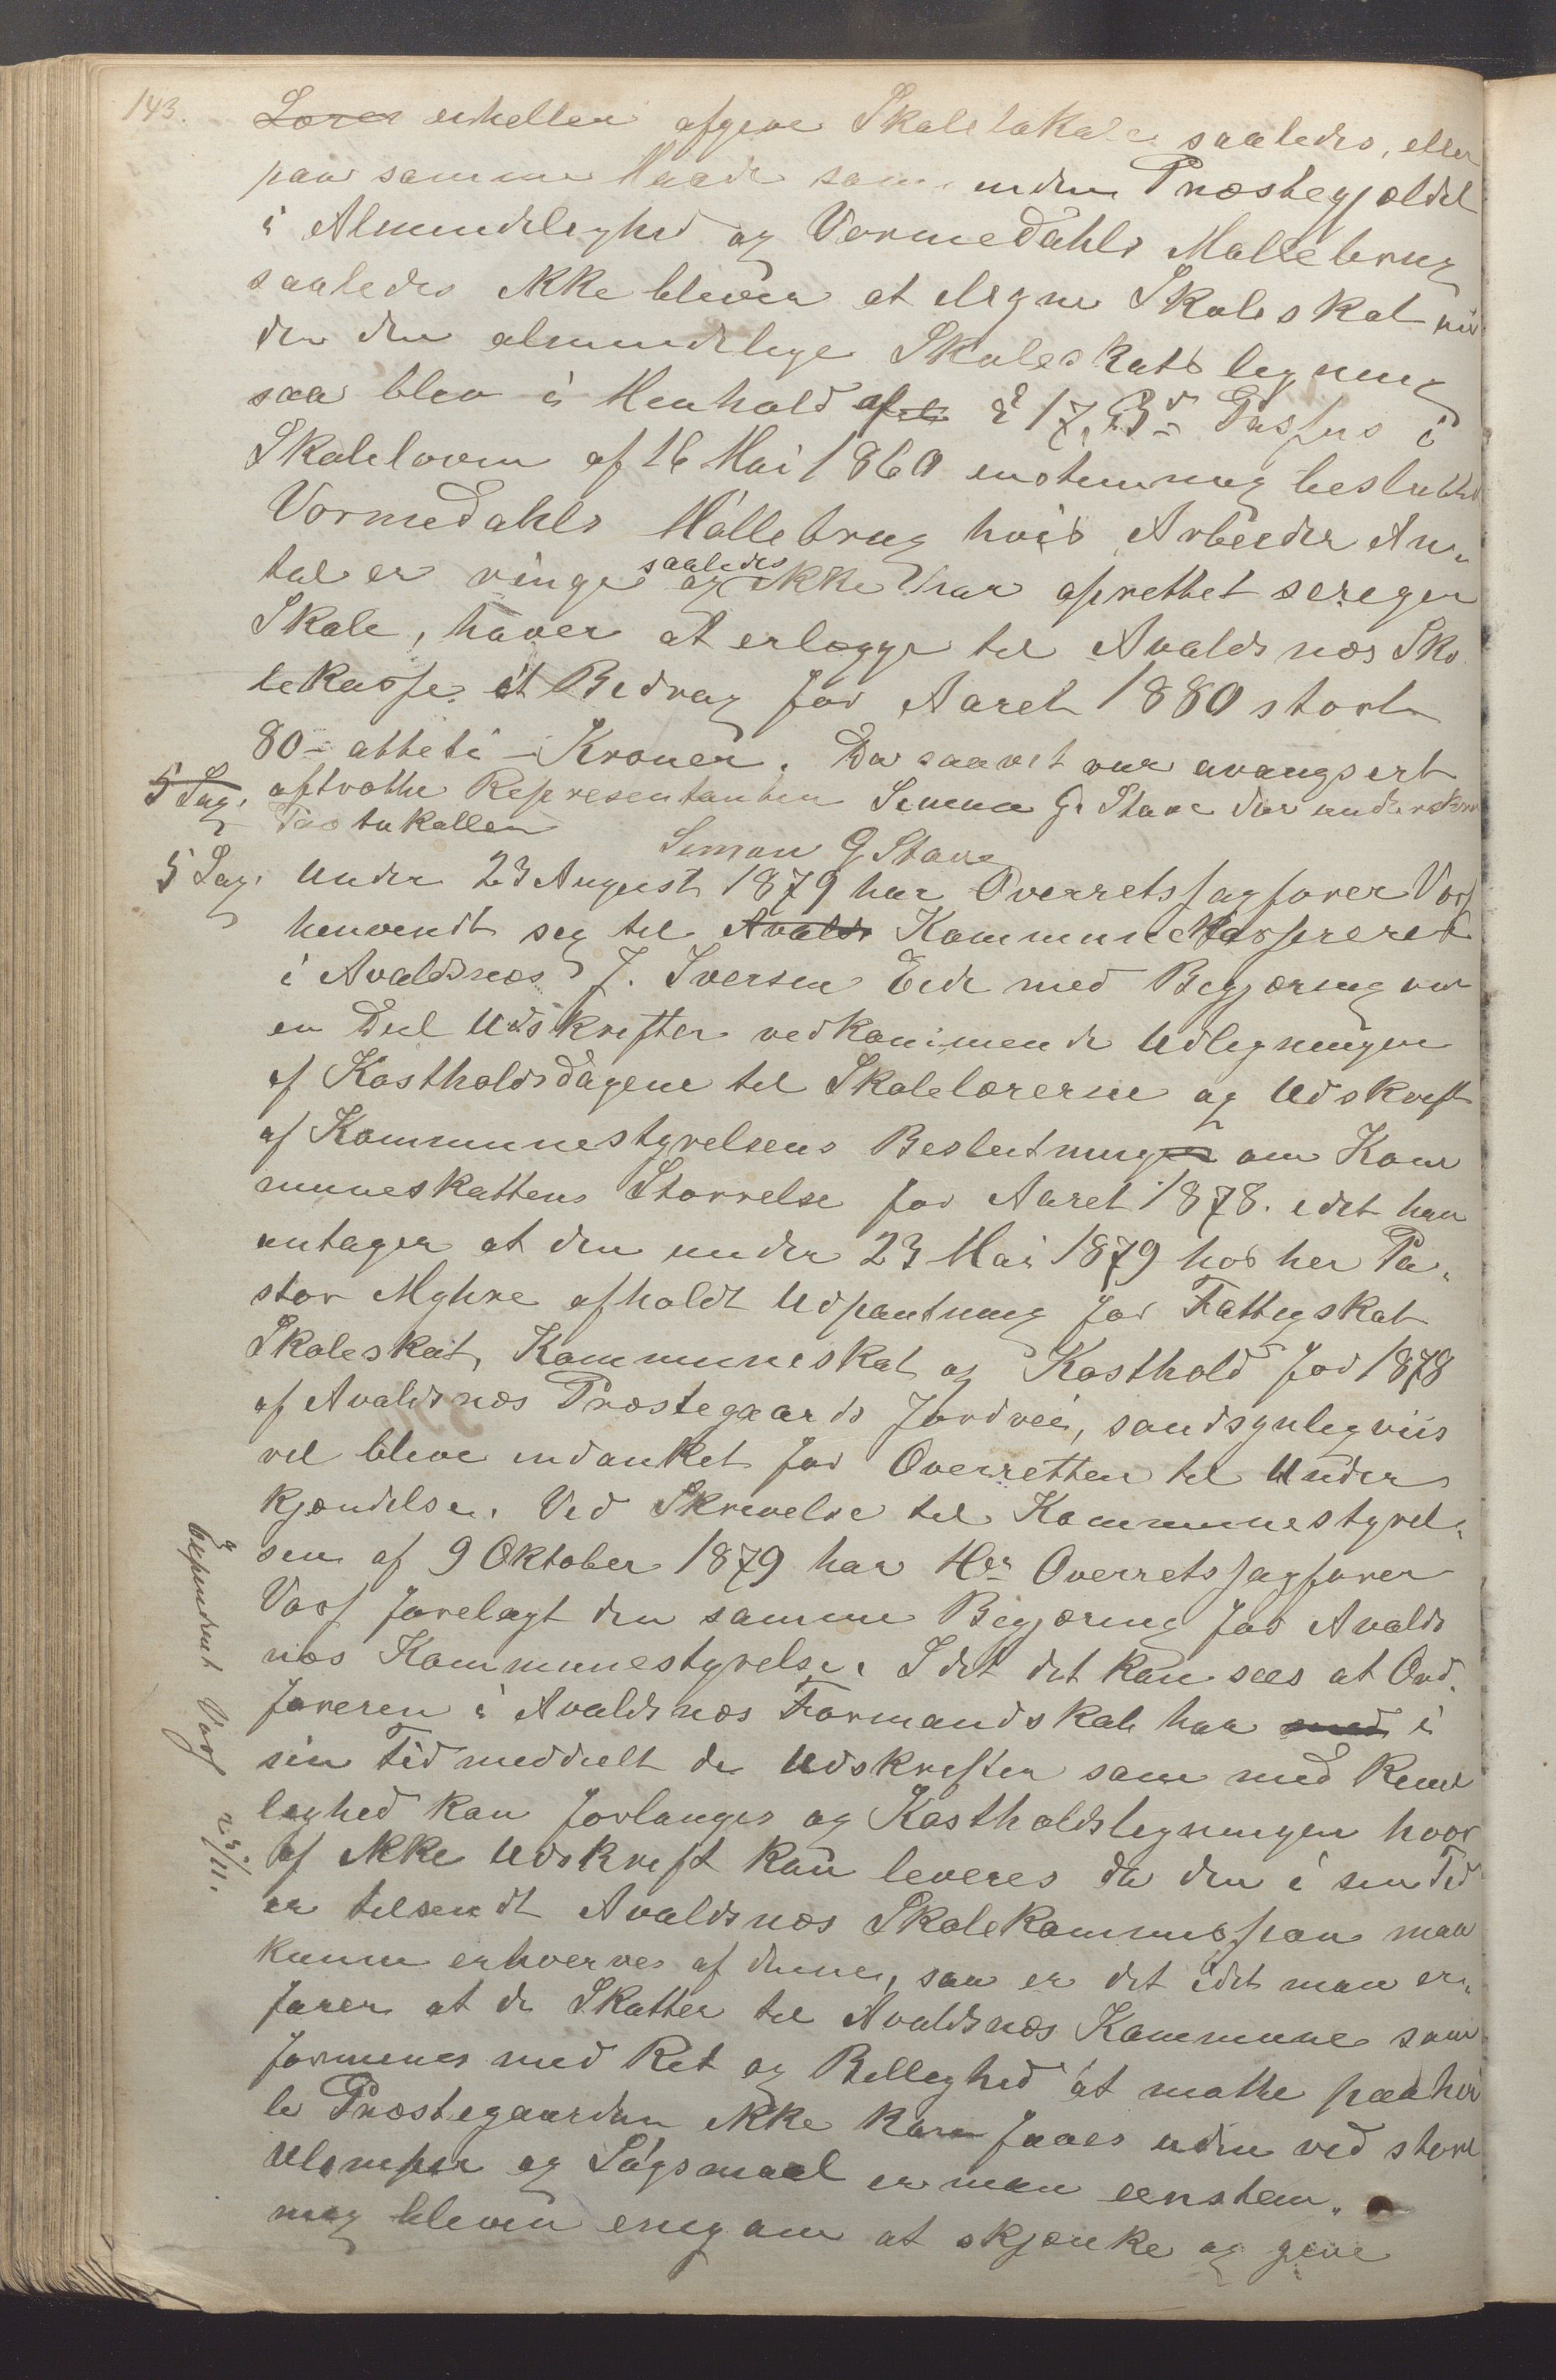 143.
Lærer eiheller afgive Skolelokale saaledes, eller
paa samme Maade som inden Præstegjældet
i Almindelighed og Vormedahls Møllebrug
saaledes ikke bleven at iligne Skoleskat un
der den almindelige Skoleskats ligning
saa blev i Henhold af § 17, 3die Passus i
Skoleloven af 16 Mai 1860 enstemmig besluttet
Vormedahls Møllebrug hvis Arbeider An„
tal er ringe og saaledes ikke har oprettet særegen
Skole, haver at erlægge til Avaldsnæs Sko
lekasse et Bidrag for Aaret 1880 stort
80 – otteti – Kroner. Da saavit var avangsert
5 Sag. aftrotte Representanten Simon G. Stave der underskrev
Protokollen
Simon G Stave
5 Sag. Under 23 August 1879 har Overretssagfører Vogt
henvendt sig til Avalds Kommunekassereren
i Avaldsnæs J. Iversen Eide med Begjæring om
en Deel Udskrifter vedkommende Udligningen
af Kostholdsdagene til Skolelærerne og Udskrift
af Kommunestyrelsens Beslutninger om Kom
muneskattens Størrelse for Aaret 1878. idet han
antager at den under 23 Mai 1879 hos her Pa„
stor Myhre afholdt Udpantning for Fattigskat
Skoleskat, Kommuneskat og Kosthold for 1878
af Avaldsnæs Præstegaards Jordvei, sandsynligviis
vil blive indanket for Overretten til Under
kjændelse. Ved Skrivelse til Kommunestyrel„
sen af 9 Oktober 1879 har Hrr Overretssagfører
Vogt forelagt den samme Begjæring for Avalds
næs Kommunestyrelse. I det det kan sees at Ord„
føreren i Avaldsnæs Formandskab har med i
sin Tid meddelt de Udskrifter som med Rime
lighed kan forlanges og Kostholdsligningen hvor
af ikke Udskrift kan leveres da den i sin Tid
er tilsendt Avaldsnæs Skolekommission maa
kunne erhverves af denne, saa er det idet man er„
farer at de Skatter til Avaldsnæs Kommune som
formenes med Ret og Billighed at maatte paahvi
le Præstegaarden ikke kan faaes uden ved store
Ulemper og Søgsmaal er man eenstem„
mig bleven enig om at skjænke og give
Expenderet Vogt 23/11.